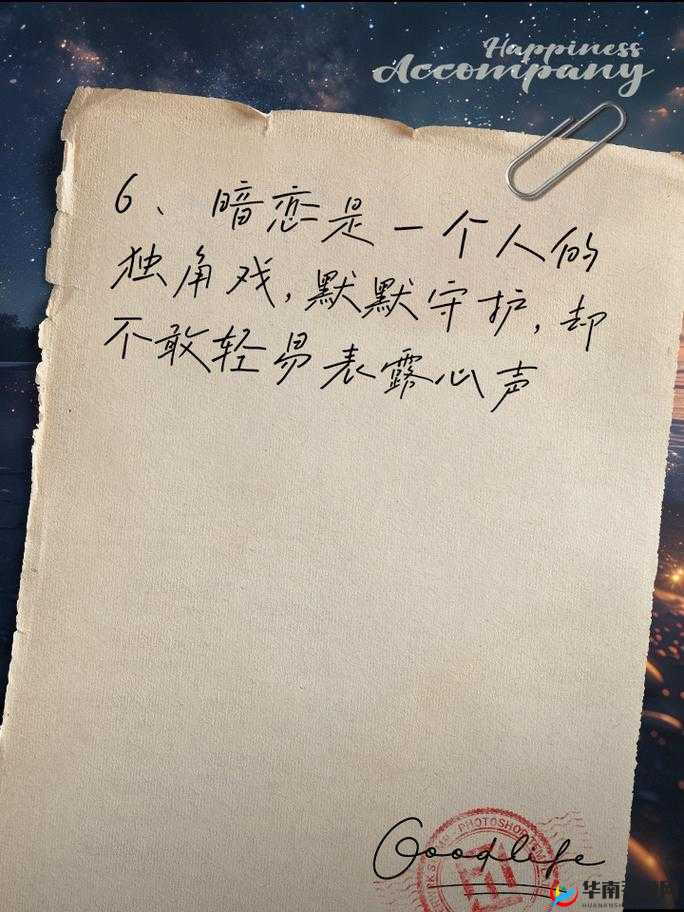 Happiness
Accompany
6、暗恋是一个人的
独角戏,默默守护,却
不敢轻易表露心声
PHOTOSHOP
Goodlife
华南